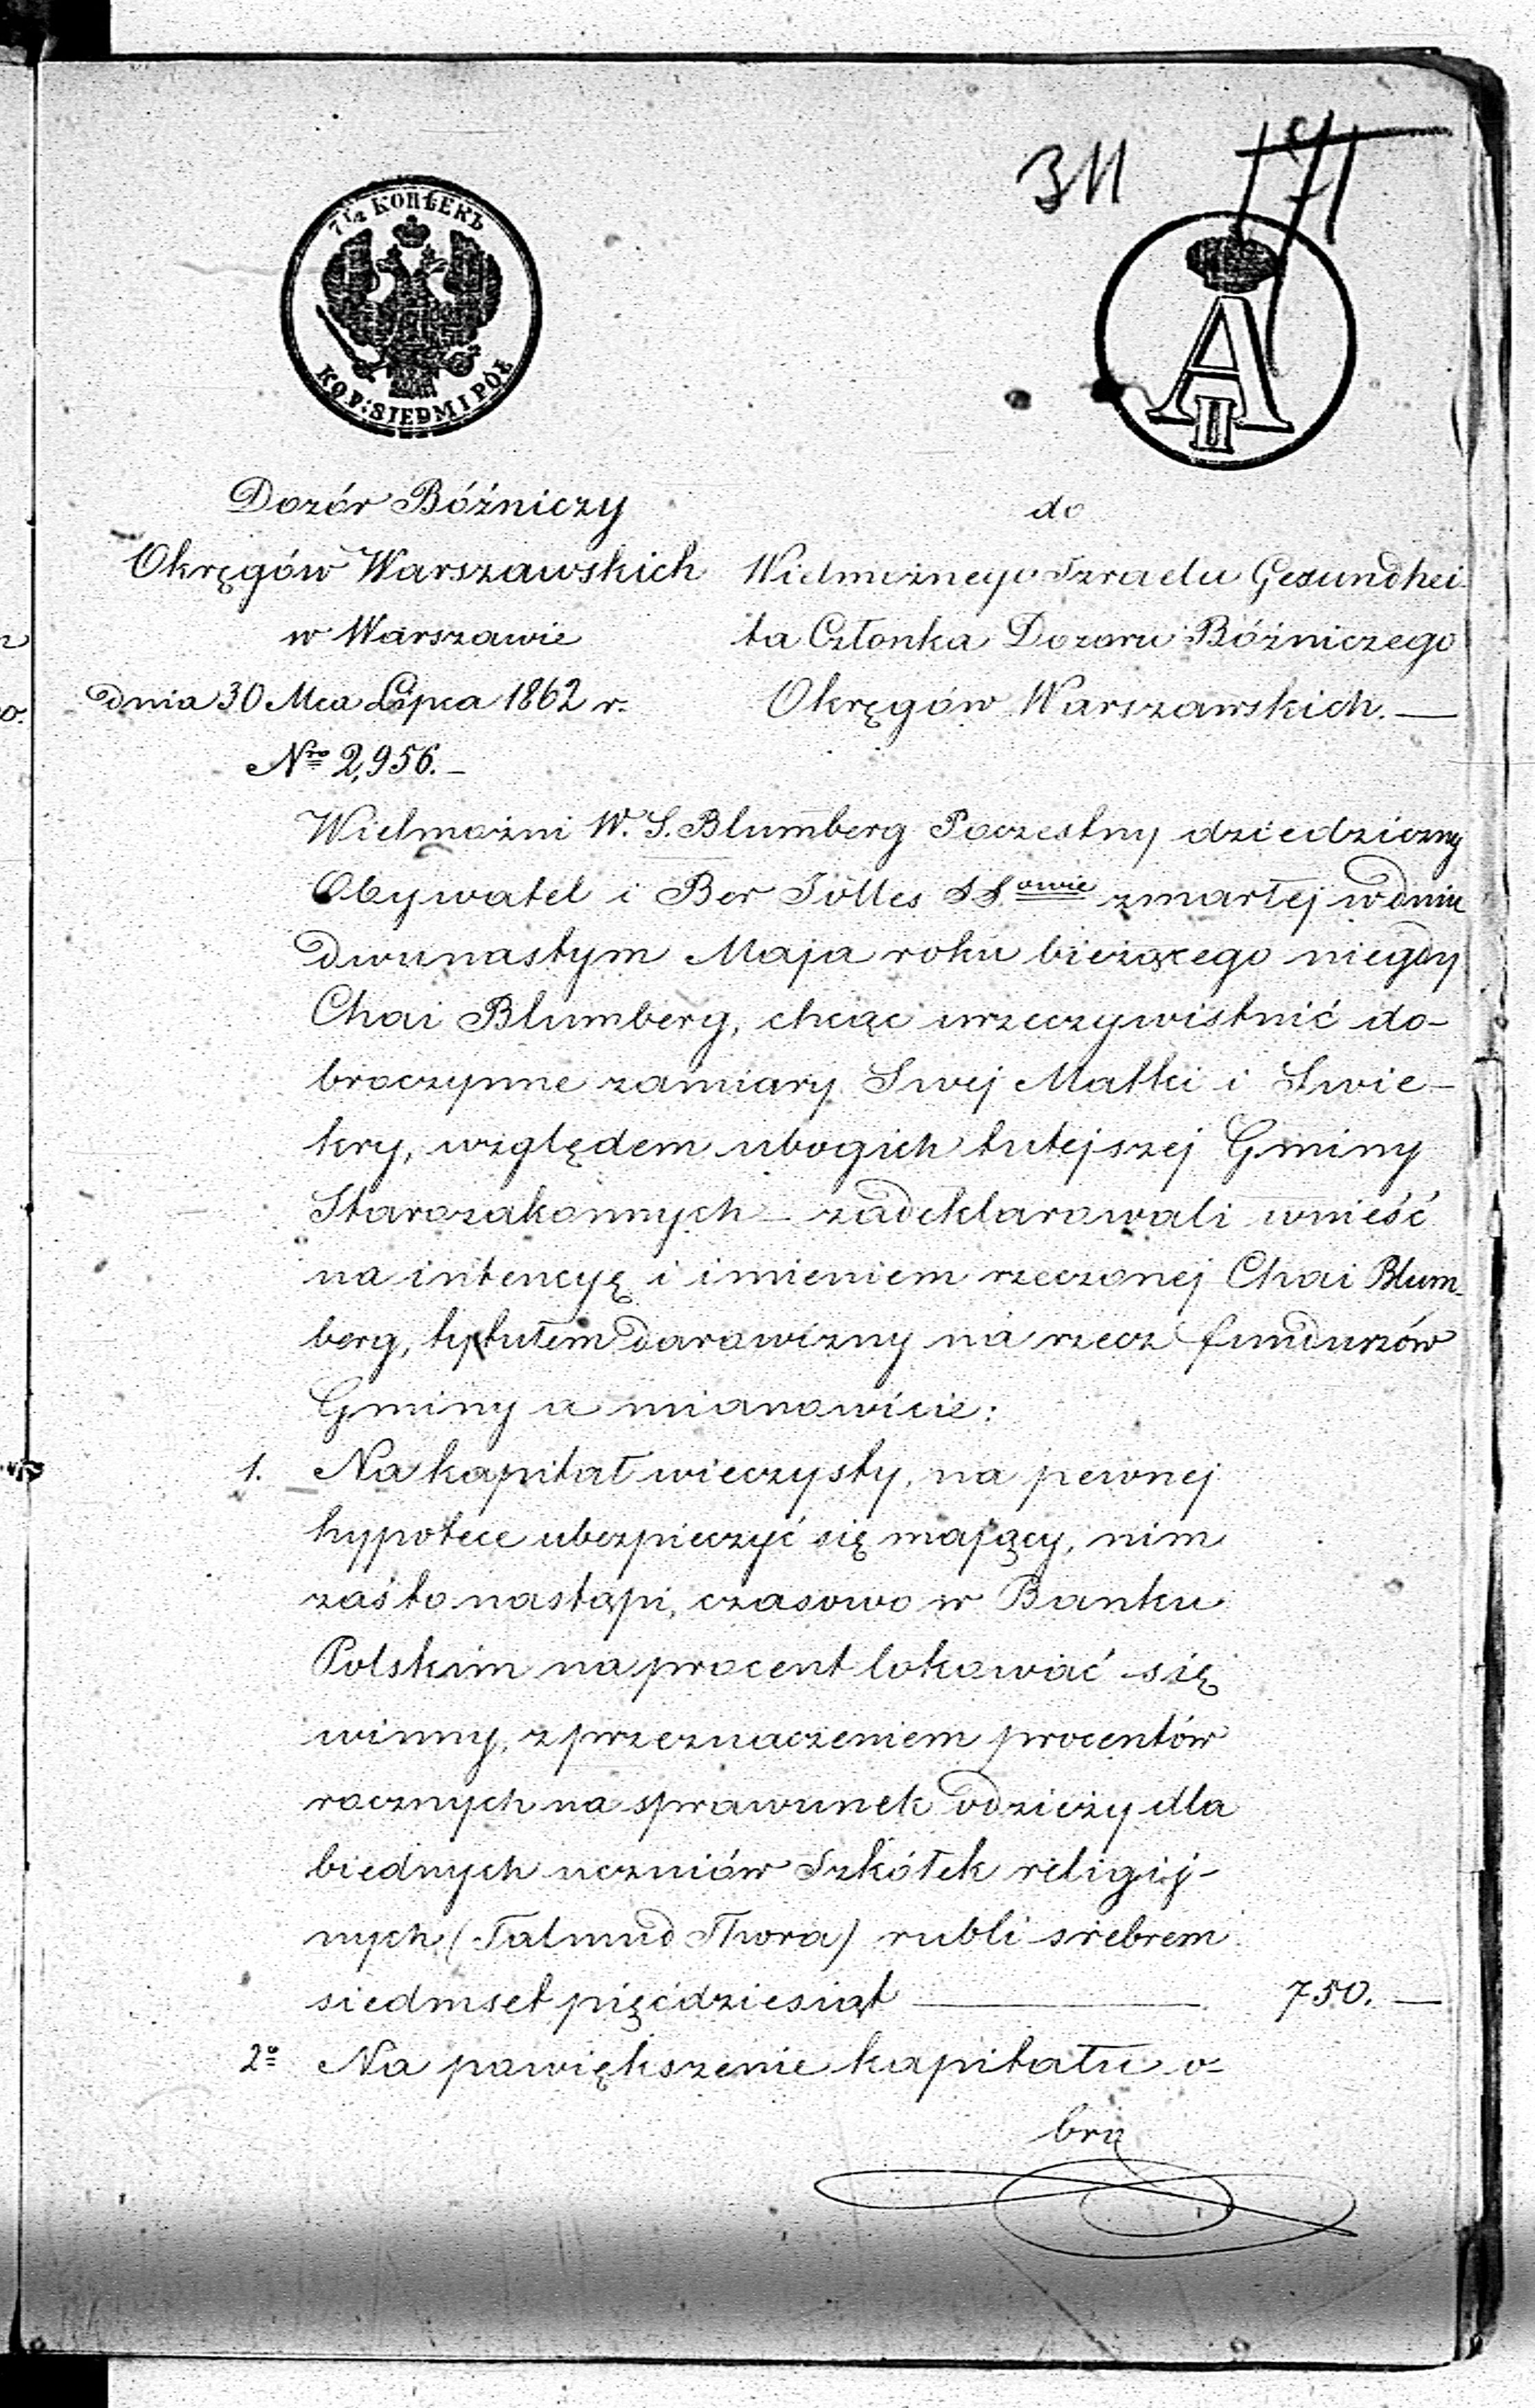 311 171
7 1/2 КОПѢЕКЪ
КОР: SIEDM I PÓŁ
A II
Dozór Bóźniczy
Okręgów Warszawskich
w Warszawie
dnia 30 Mca Lipca 1862 r.
Nro 2,956.—
do
Wielmożnego Izraelu Gesundhei-
ta Członka Dozoru Bóźniczego
Okręgów Warszawskich.—
Wielmożni W. S. Blumberg Poczestny dziedziczny
Obywatel i Ber Jolles SS.owie zmarłej w dniu
dwunastym Maja roku bieżącego niegdy
Chai Blumberg, chcąc urzeczywistnić do-
broczynne zamiary Swej Matki i Swie-
kry, względem ubogich tutejszej Gminy
Starozakonnych — zadeklarowali wnieść
na intencyę i imieniem rzeczonej Chai Blum-
berg, tytułem darowizny na rzecz funduszów
Gminy a mianowicie:
1. Na kapitał wieczysty, na pewnej
hypotece ubezpieczyć się mający, nim
zaś to nastąpi, czasowo w Banku
Polskim na procent lokować się
winny, z przeznaczeniem procentów
rocznych na sprawunek odzieży dla
biednych uczniów Szkółek religij-
nych (Talmud Thora) rubli srebrem
siedmset pięćdziesiąt — 750.—
2o Na powiększenie kapitału o-
brą